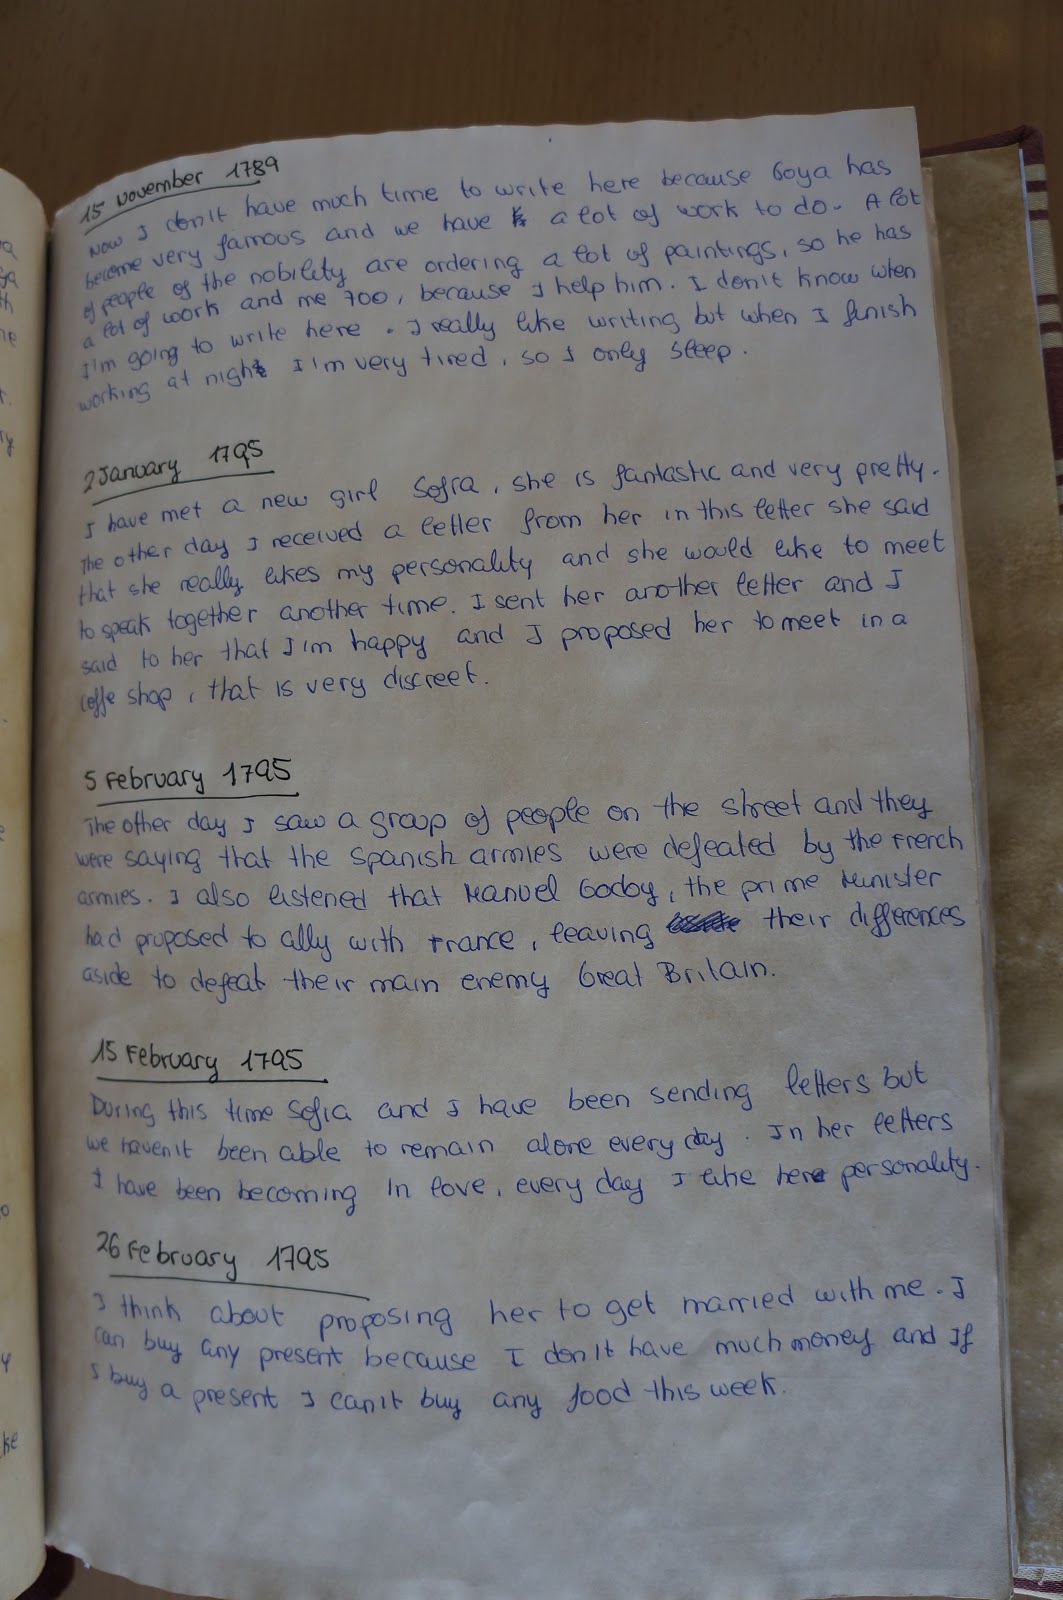 15 November 1789
Now I don't have much time to write here because Goya has
become very famous and we have a lot of work to do. A lot
of people of the nobility are ordering a lot of paintings, so he has
a lot of work and me too, because I help him. I don't know when
I'm going to write here. I really like writing but when I finish
working at night I'm very tired, so I only sleep.
2 January 1795
I have met a new girl Sofia, she is fantastic and very pretty.
The other day I received a letter from her in this letter she said
that she really likes my personality and she would like to meet
to speak together another time. I sent her another letter and I
said to her that I'm happy and I proposed her to meet in a
coffe shop, that is very discreet.
5 February 1795
The other day I saw a group of people on the street and they
were saying that the Spanish armies were defeated by the French
armies. I also listened that Manuel Godoy, the prime Minister
had proposed to ally with France, leaving their differences
aside to defeat their main enemy Great Britain.
15 February 1795
During this time Sofia and I have been sending letters but
we haven't been able to remain alone every day. In her letters
I have been becoming in love, every day I like here personality.
26 February 1795
I think about proposing her to get married with me. I
can buy any present because I don't have much money and If
I buy a present I can't buy any food this week.